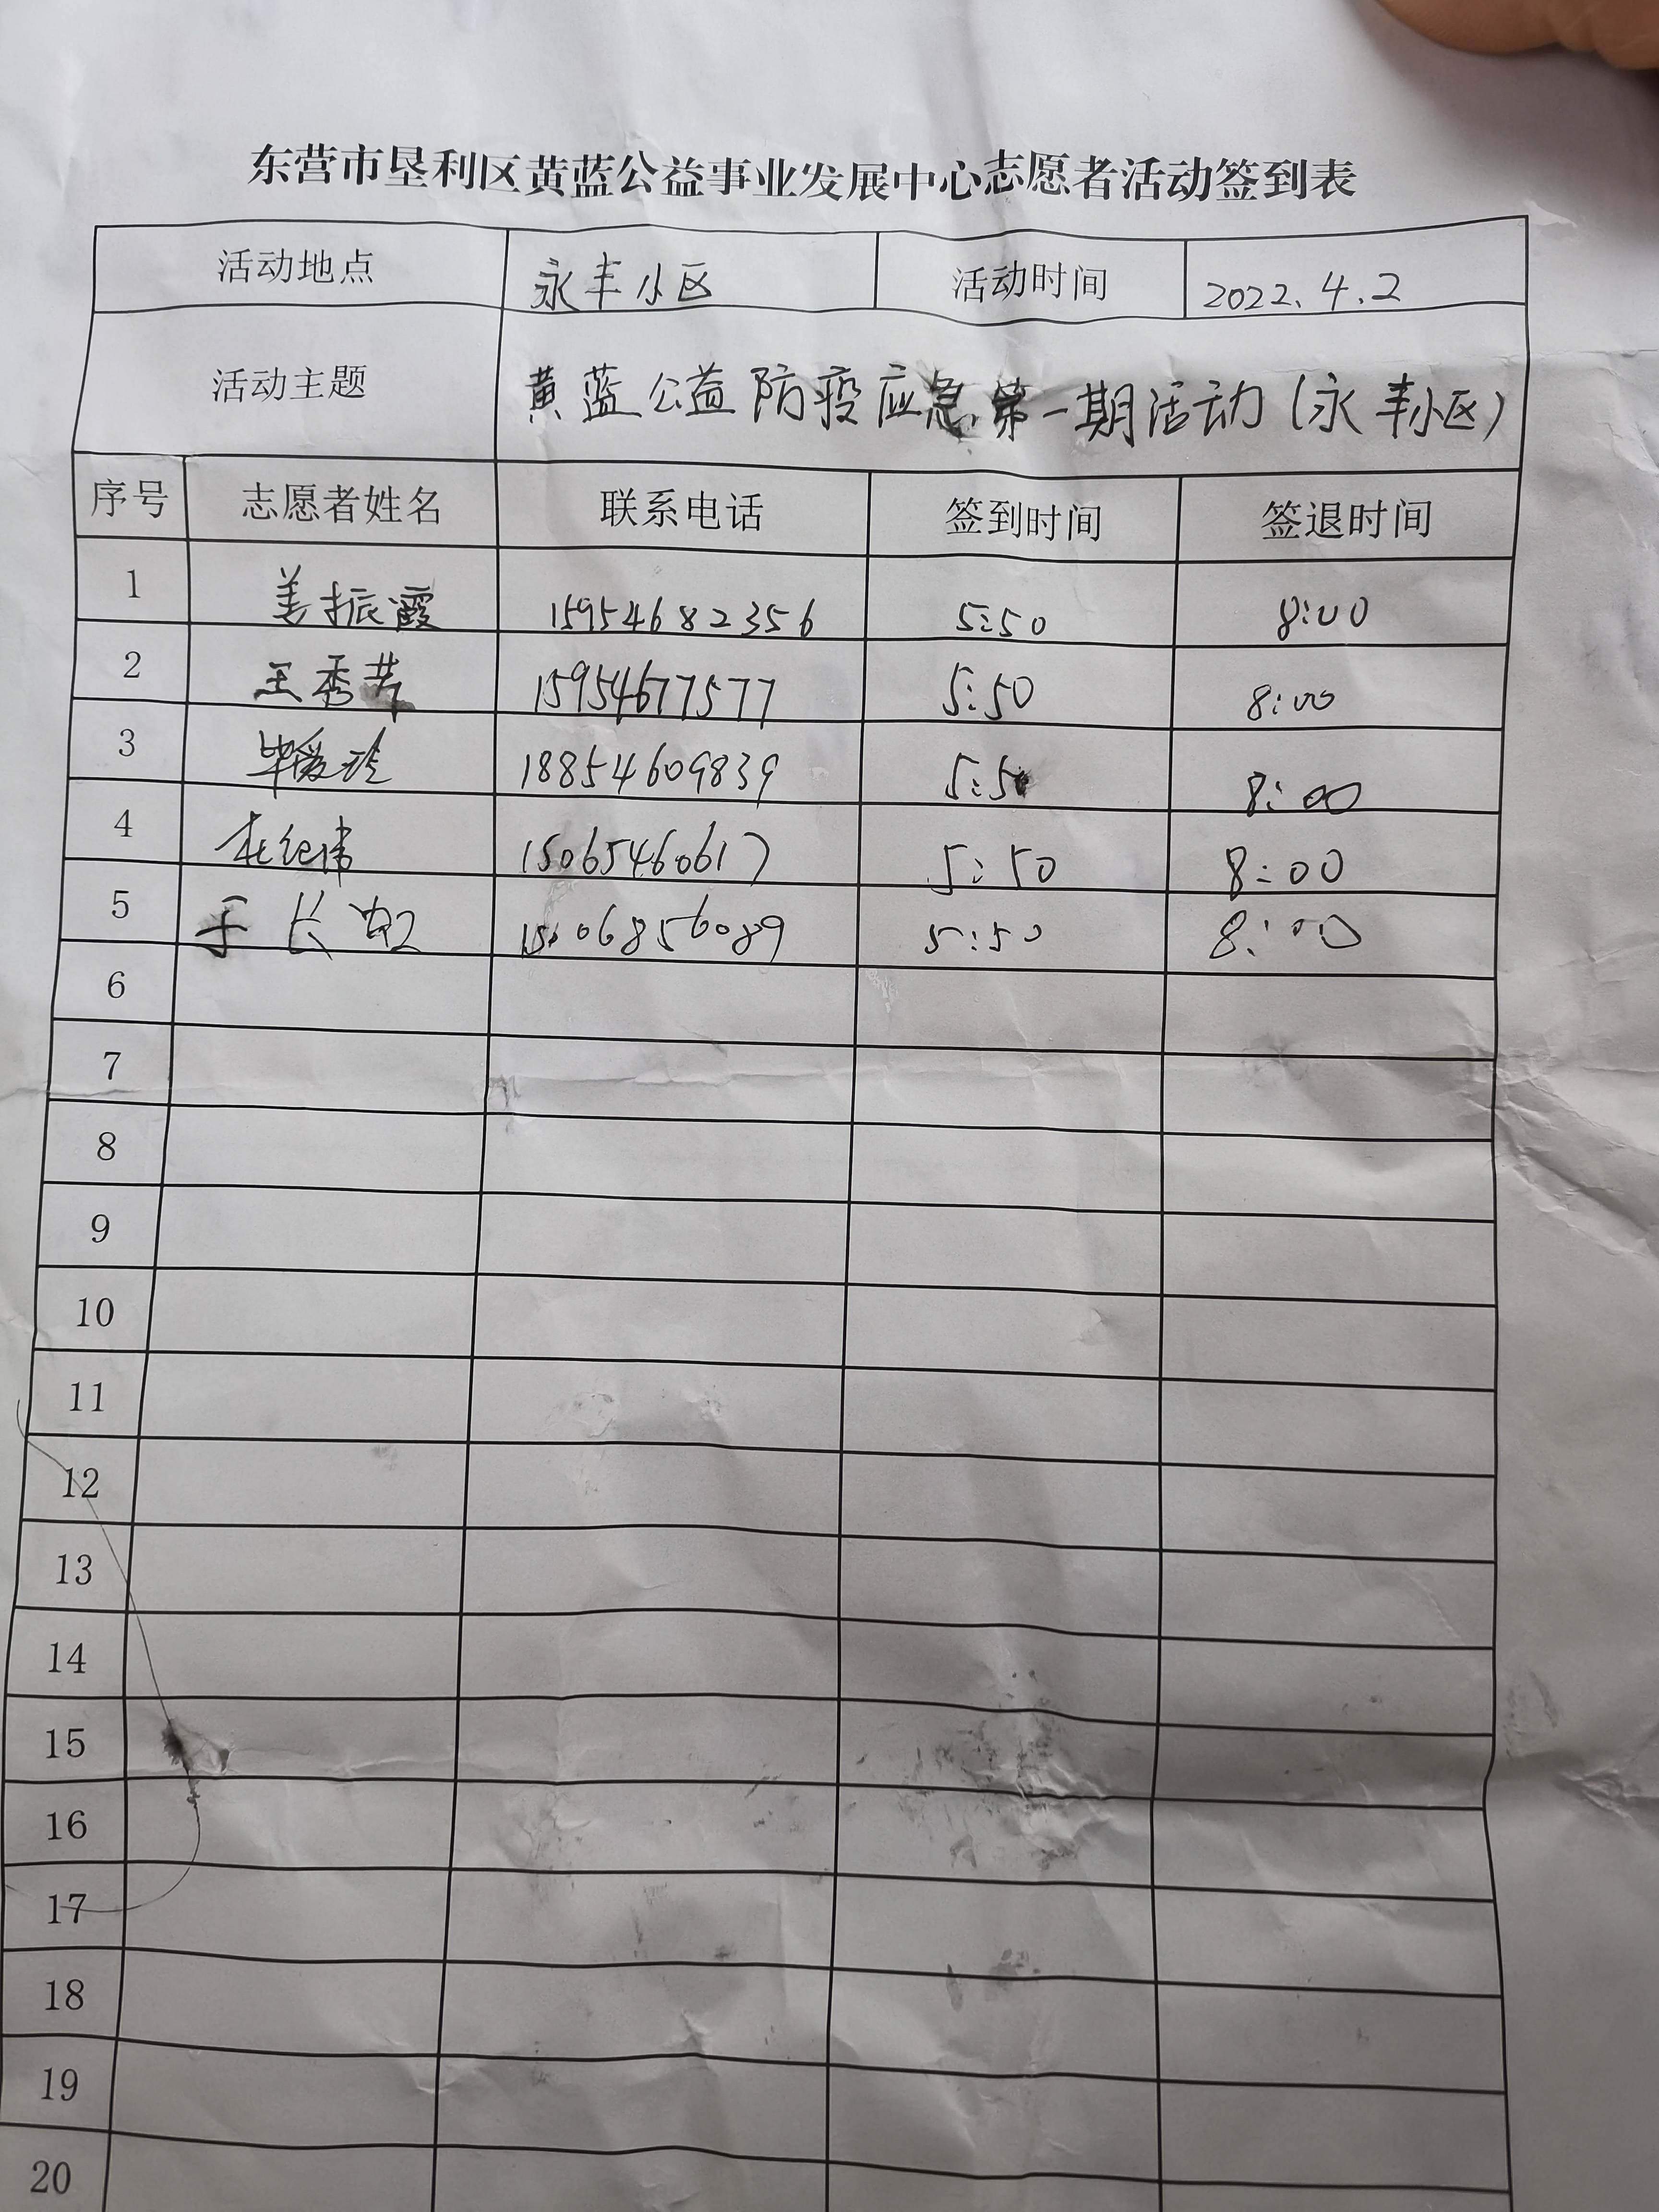 东营市垦利区黄蓝公益事业发展中心志愿者活动签到表
活动地点 永丰小区 活动时间 2022.4.2
活动主题 黄蓝公益防疫应急第一期活动(永丰小区)
序号 志愿者姓名 联系电话 签到时间 签退时间
1 姜振霞 15954682356 5:50 8:00
2 王秀芳 15954677577 5:50 8:00
3 毕爱玲 18854609839 5:50 8:00
4 杜纪伟 15065460617 5:50 8:00
5 于长 5:50 8:00
6
7
8
9
10
11
12
13
14
15
16
17
18
19
20